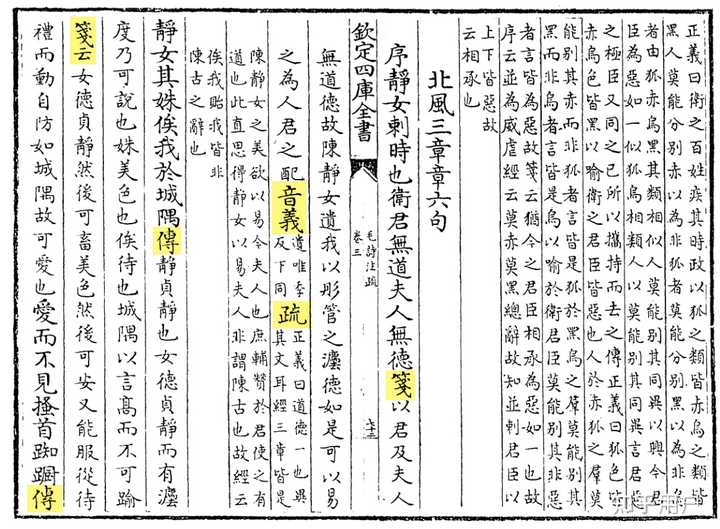 正義曰衛之百姓疾其時政以狐之類皆赤烏之類皆
黑人莫能分別赤以為非狐者莫能分別黑以為非烏
者由狐赤烏黑其類相似人莫能別其同異以興今君
臣為惡如一似狐烏相類人以莫能別其同異言君惡
之極臣又同之已所以攜持而去之傳正義曰狐色皆
赤烏色皆黑以喻衛之君臣皆惡也人於赤狐之羣莫
能別其赤而非狐者言皆是狐於黑烏之羣莫能別其
黑而非烏者言皆是烏以喻於衛君臣莫能別其非惡
者言皆為惡故箋云猶今之君臣相承為惡如一也故
序云並為威虐經云莫赤莫黑總辭故知並刺君臣以
上下皆惡故
云相承也
北風三章章六句
序靜女刺時也衛君無道夫人無德箋以君及夫人
欽定四庫全書
毛詩注疏
卷三
六十三
無道德故陳靜女遺我以彤管之灋德如是可以易
之為人君之配音義遺唯季
反下同疏正義曰道德一也異
其文耳經三章皆是
陳靜女之美欲以易今夫人也庶輔贊於君使之有
道也此直思得靜女以易夫人非謂陳古也故經云
俟我貽我皆非
陳古之辭也
靜女其姝俟我於城隅傳靜貞靜也女德貞靜而有灋
度乃可說也姝美色也俟待也城隅以言高而不可踰
箋云女德貞靜然後可畜美色然後可安又能服從待
禮而動自防如城隅故可愛也愛而不見搔首踟躕傳
知乎用户